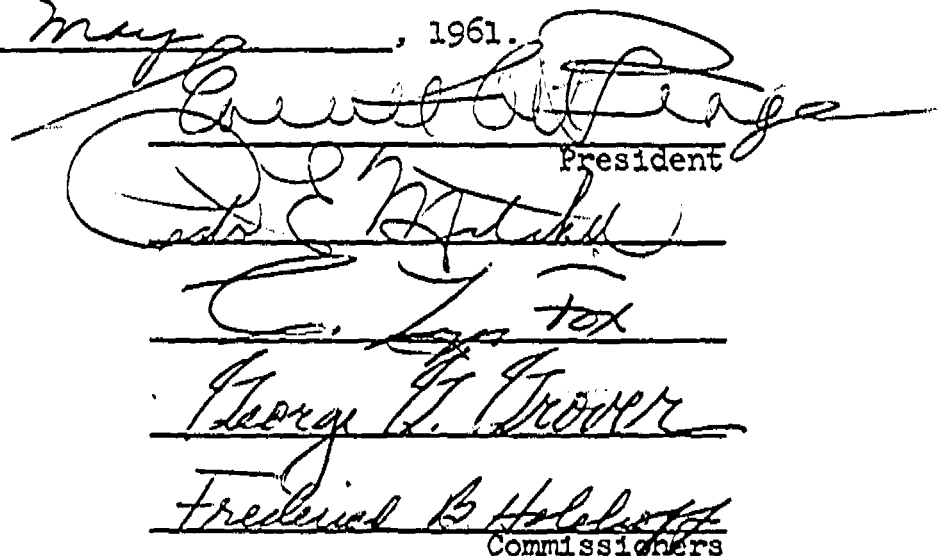 May, 1961.
Everett C. McKeage
President
Peter E Mitchell
C. Lyn Fox
George G. Grover
Frederick B Holoboff
Commissioners